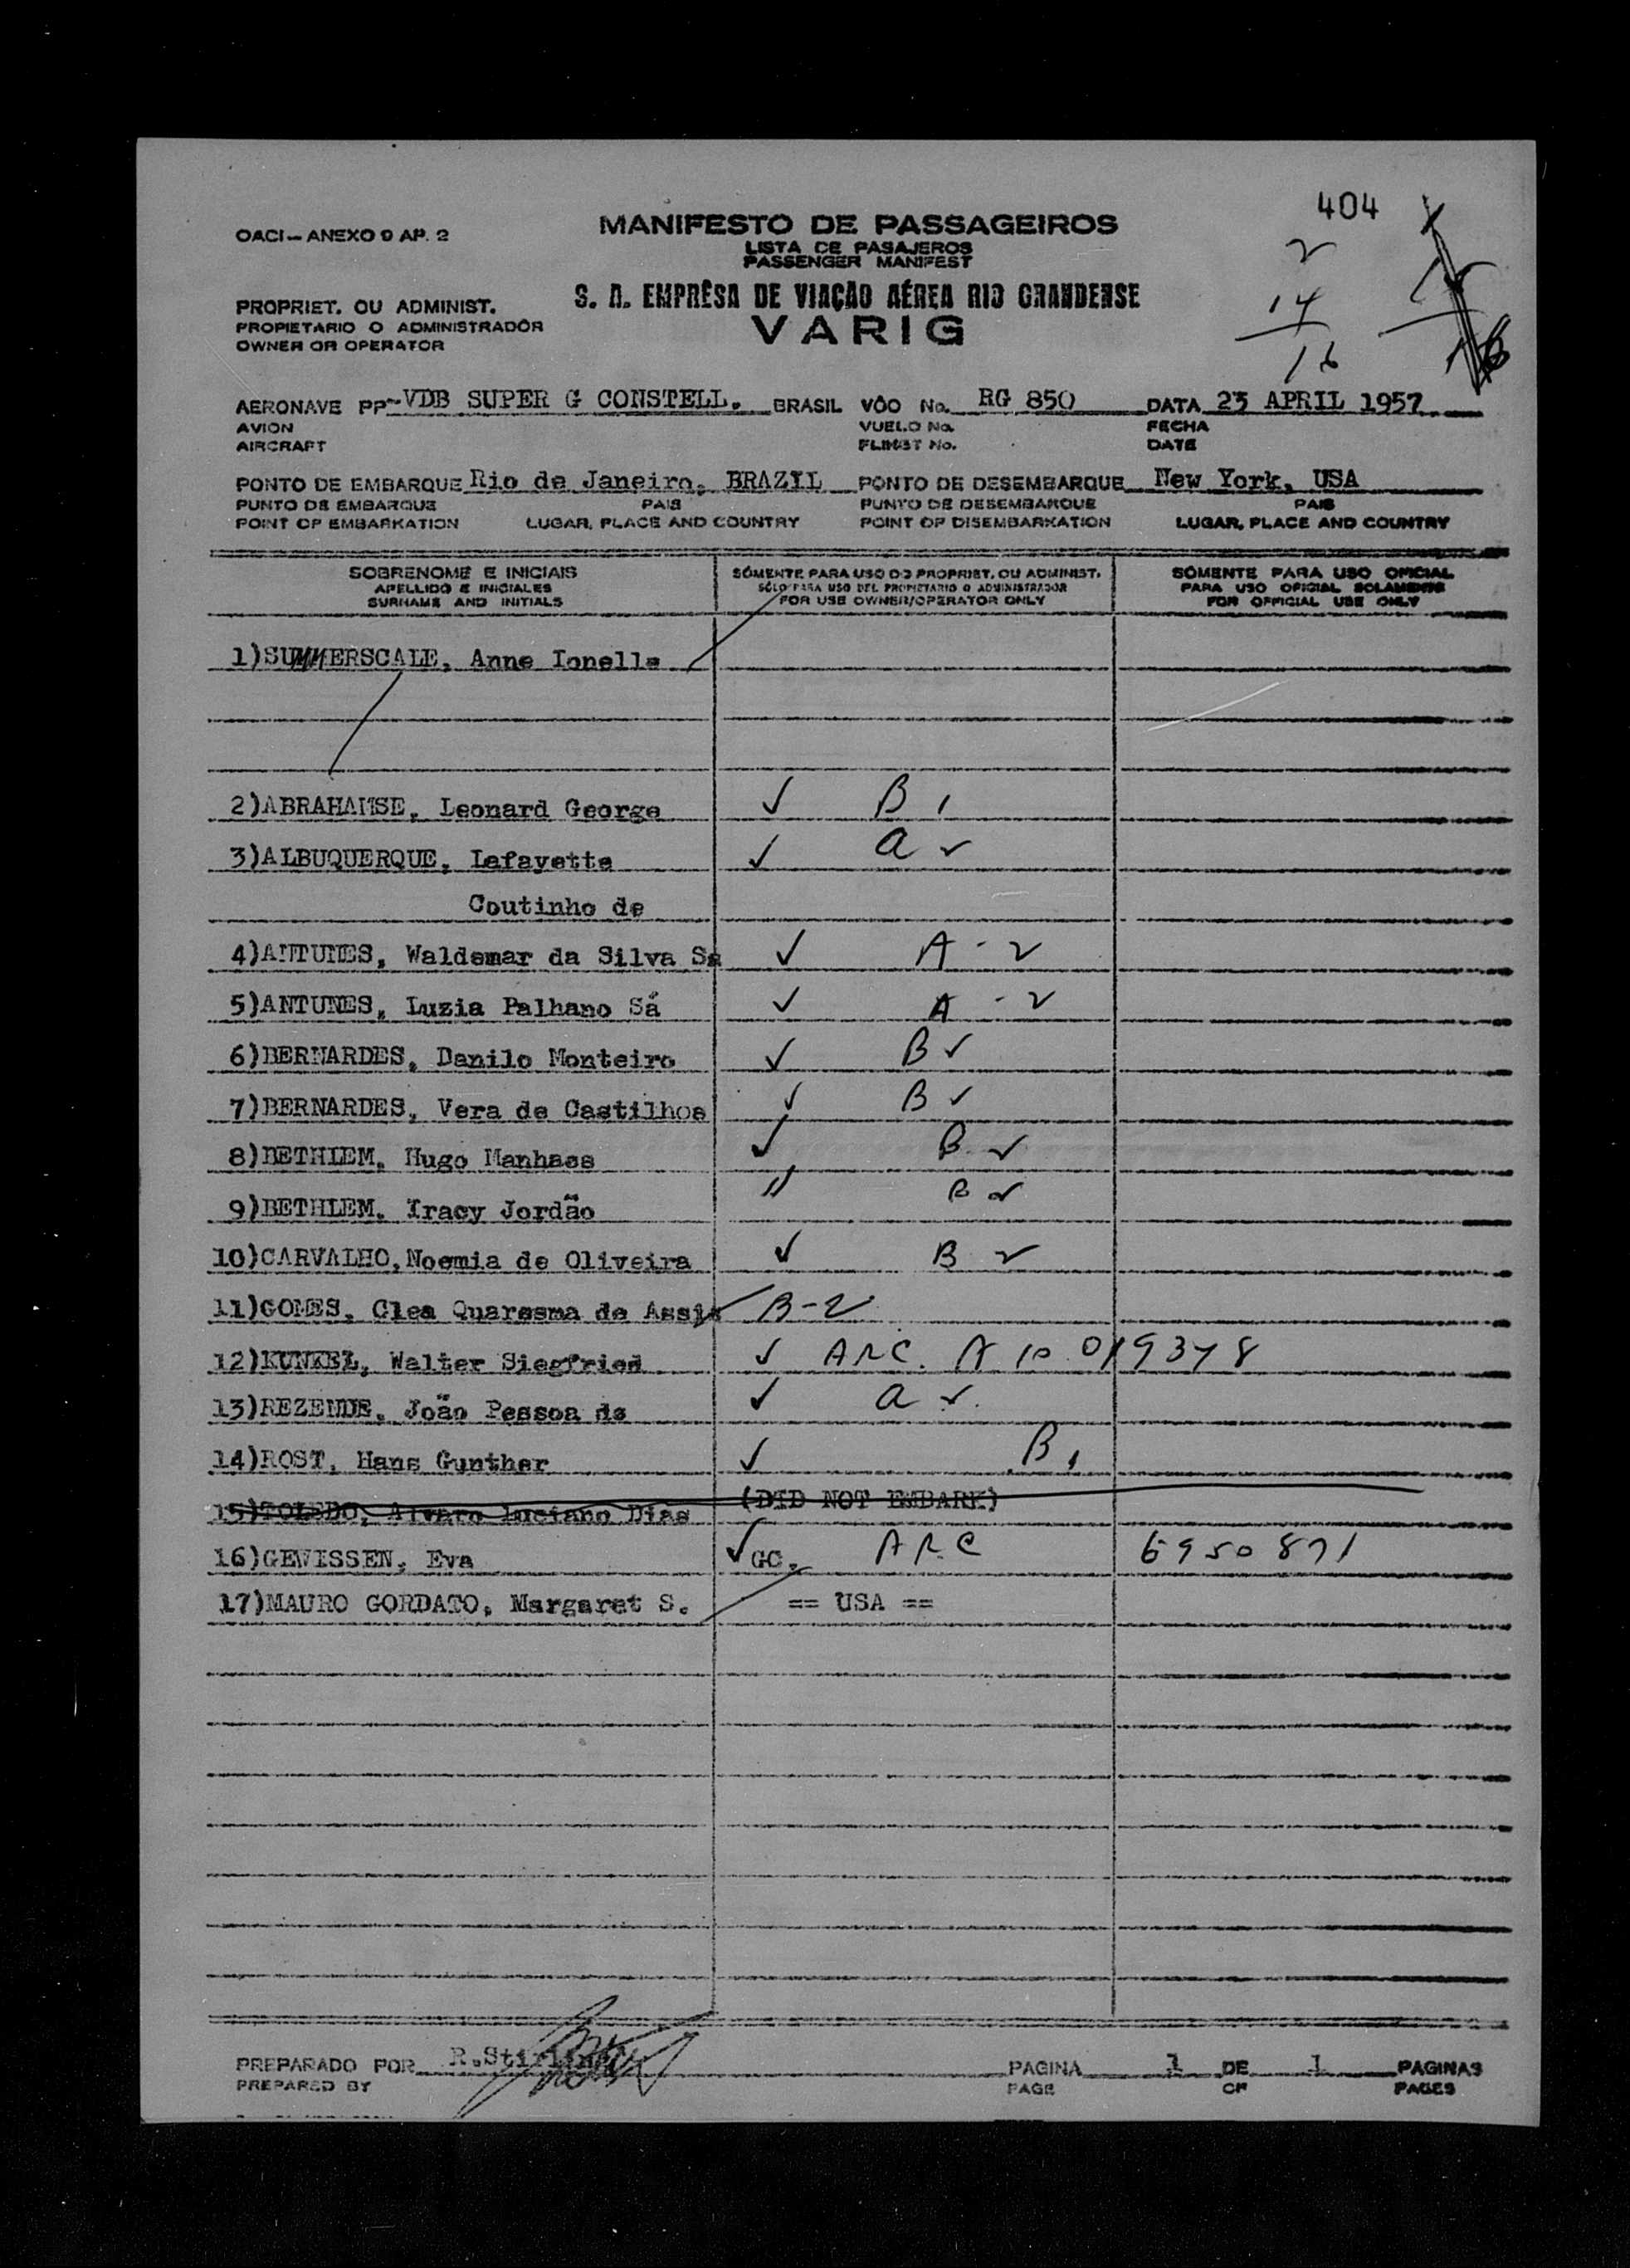 404
OACI — ANEXO 9 AP. 2
MANIFESTO DE PASSAGEIROS
LISTA DE PASAJEROS
PASSENGER MANIFEST
2
14
16
S. A. EMPRÊSA DE VIAÇÃO AÉREA RIO GRANDENSE
VARIG
PROPRIET. OU ADMINIST.
PROPIETARIO O ADMINISTRADÓR
OWNER OR OPERATOR
AERONAVE PP-VDB SUPER G CONSTELL. BRASIL VÔO No. RG 850 DATA 23 APRIL 1957
AVION VUELO No. FECHA
AIRCRAFT FLIGHT No. DATE
PONTO DE EMBARQUE Rio de Janeiro, BRAZIL PONTO DE DESEMBARQUE New York, USA
PUNTO DE EMBARQUE PAIS PUNTO DE DESEMBARQUE PAIS
POINT OF EMBARKATION LUGAR, PLACE AND COUNTRY POINT OF DISEMBARKATION LUGAR, PLACE AND COUNTRY
SOBRENOME E INICIAIS SÓMENTE PARA USO DO PROPRIET. OU ADMINIST. SÓMENTE PARA USO OFICIAL
APELLIDO E INICIALES SÓLO PARA USO DEL PROPIETARIO O ADMINISTRADOR PARA USO OFICIAL SOLAMENTE
SURNAME AND INITIALS FOR USE OWNER/OPERATOR ONLY FOR OFFICIAL USE ONLY
1)SUMMERSCALE, Anne Ionella
2)ABRAHAMSE, Leonard George ✓ B 1
3)ALBUQUERQUE, Lafayette ✓ a ✓
Coutinho de
4)ANTUNES, Waldemar da Silva Sá ✓ A - 2
5)ANTUNES, Luzia Palhano Sá ✓ A - 2
6)BERNARDES, Danilo Monteiro ✓ B ✓
7)BERNARDES, Vera de Castilhos ✓ B ✓
8)BETHLEM, Hugo Manhaes ✓ B ✓
9)BETHLEM, Iracy Jordão " B ✓
10)CARVALHO, Noemia de Oliveira ✓ B 2
11)GOMES, Clea Quaresma de Assis B-2
12)KUNKEL, Walter Siegfried ✓ ARC. A 10 019378
13)REZENDE, João Pessoa de ✓ a ✓
14)ROST, Hans Gunther ✓ B 1
15)TOLEDO, Alvaro Luciano Dias (DID NOT EMBARK)
16)GEWISSEN, Eva ✓ GC. ARC 6950871
17)MAURO GORDATO, Margaret S. == USA ==
PREPARADO POR R.Stirling PAGINA 1 DE 1 PAGINAS
PREPARED BY PAGE OF PAGES